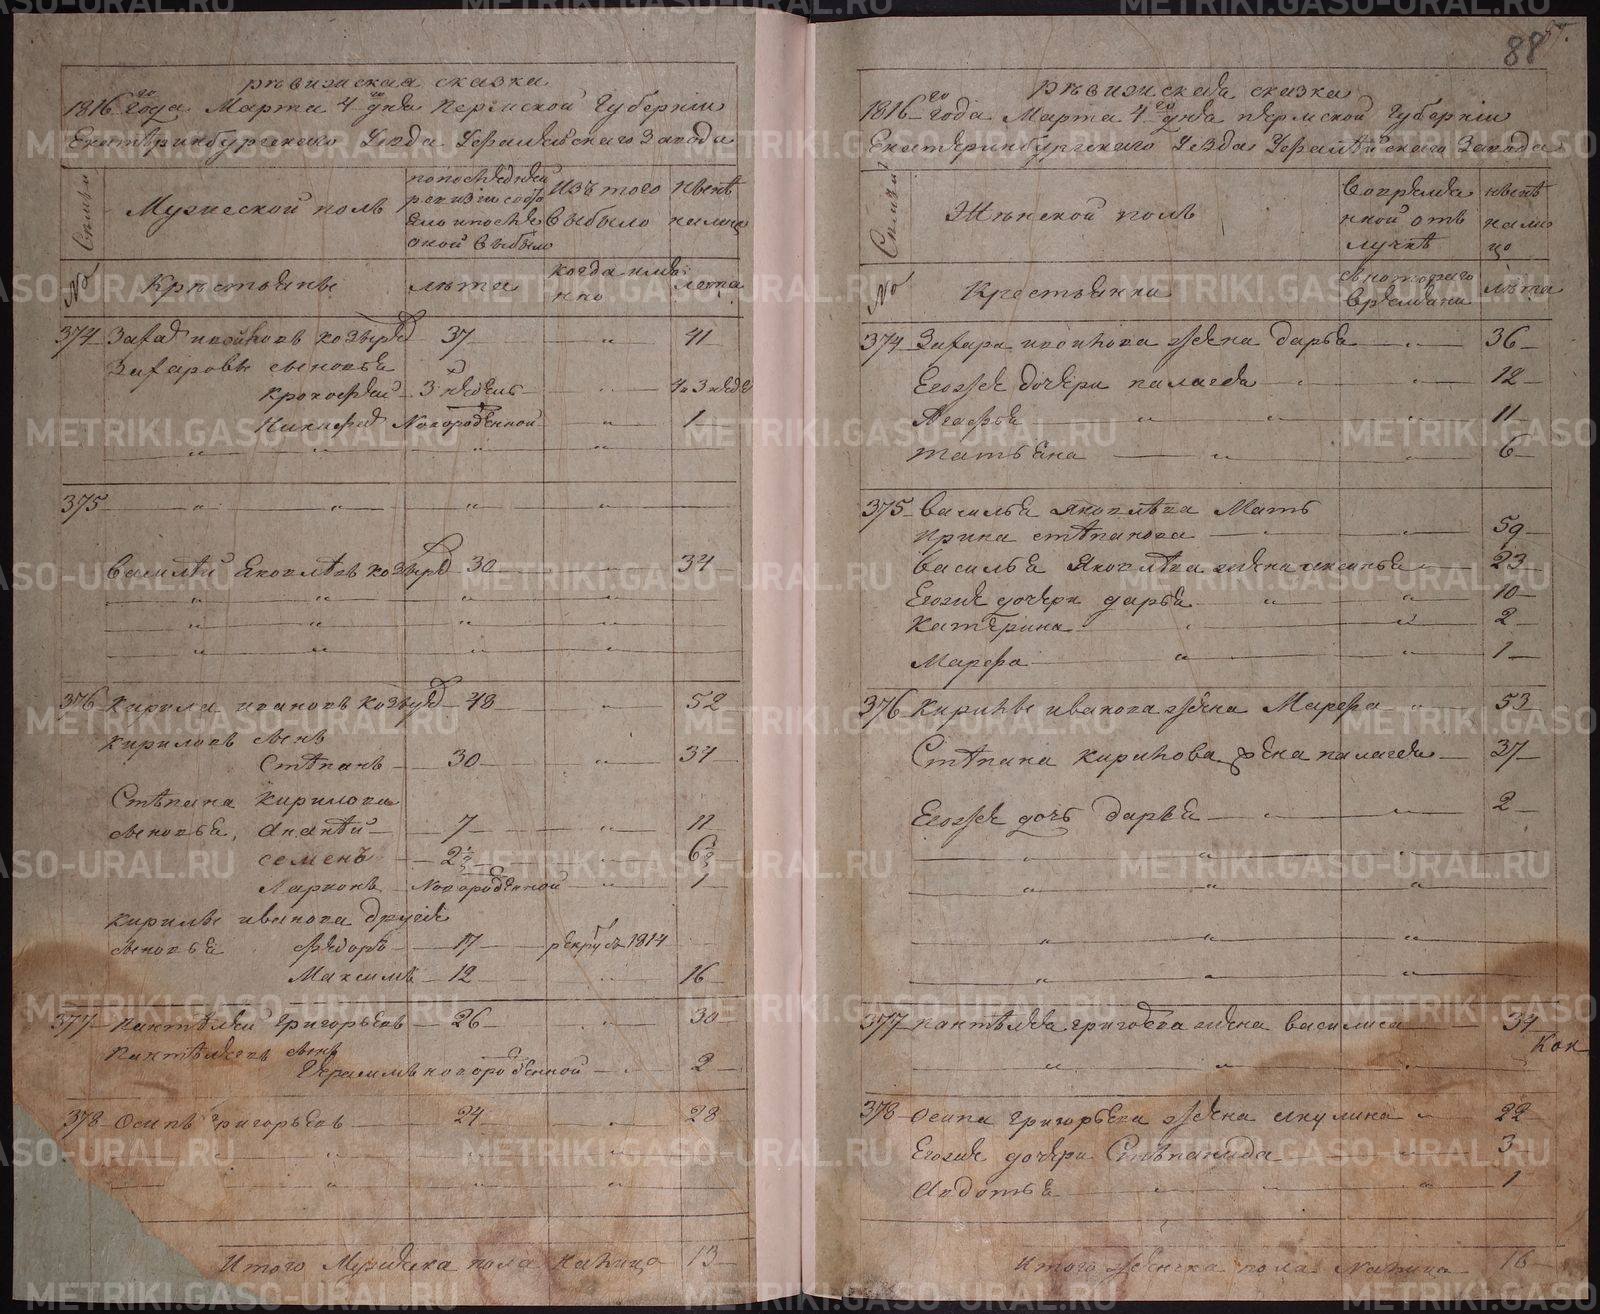 88
57.
ревизская сказка
1816 го года Марта 4 го дня Пермской Губернии
Екатеринбургскаго Уезда Уфалейскаго Завода
Семьи
Мужеской полъ
по последней ревизии состояло и после оной выбыло
Изъ того выбыло
ныне налицо
№
Крестьяне
лета
когда имянно
лета
374 37 — „ — 41
Захаровы сыновья
3 недель — „ — 4 и 3 неде
Никифор Новорожденной — „ — 1
375 — „ — „ — „ — „
Василей Яковлевъ 30 — „ — 34
376 Кирила Ивановъ 48 — „ — 52
Кириловъ сынъ
Степанъ — 30 — „ — 34
Степана Кирилова
сыновья, Ананей — 7 — „ — 11
Семенъ — 2½ — 6½
Ларионъ — Новорожденной — „ — 1
Кирилы Иванова другие
сыновья Федоръ — 17 — рекрут 1814
Максимъ — 12 — „ — 16
377 Пантелей Григорьевъ — 26 — „ — 30
Пантелеевъ сынъ
новорожденной — „ — 2
378 Осипъ Григорьевъ — 24 — „ — 28
Итого Мужеска пола Налицо 13
ревизская сказка
1816 го года Марта 4 го дня Пермской Губернии
Екатеринбургскаго Уезда Уфалейскаго Завода
Семьи
Женской полъ
во временной отлучке
ныне налицо
№
Крестьянки
с котораго времяни
лета
374 Захара жена Дарья — „ — 36
Егоже дочери Палагея — „ — 12
Агафья — „ — „ — 11
Татьяна — „ — „ — 6
375 Василья Яковлева Мать
Ирина Степанова — „ — 59
Василья Яковлева жена Аксинья — „ — 23
Егоже дочери Дарья — „ — „ — 10
Катерина — „ — 2
Марфа — „ — „ — 1
376 Кирилы Иванова жена Марфа — „ — 53
Степана Кирилова жена Палагея — 37
Егоже дочь Дарья — „ — „ — 2
377 Пантелея Григорьева жена Василиса — 34
378 Осипа Григорьева жена Акулина — „ — 22
Егоже дочери Степанида — 3
Авдотья — „ — „ — 1
Итого женска пола Налицо 16
METRIKI.GASO-URAL.RU